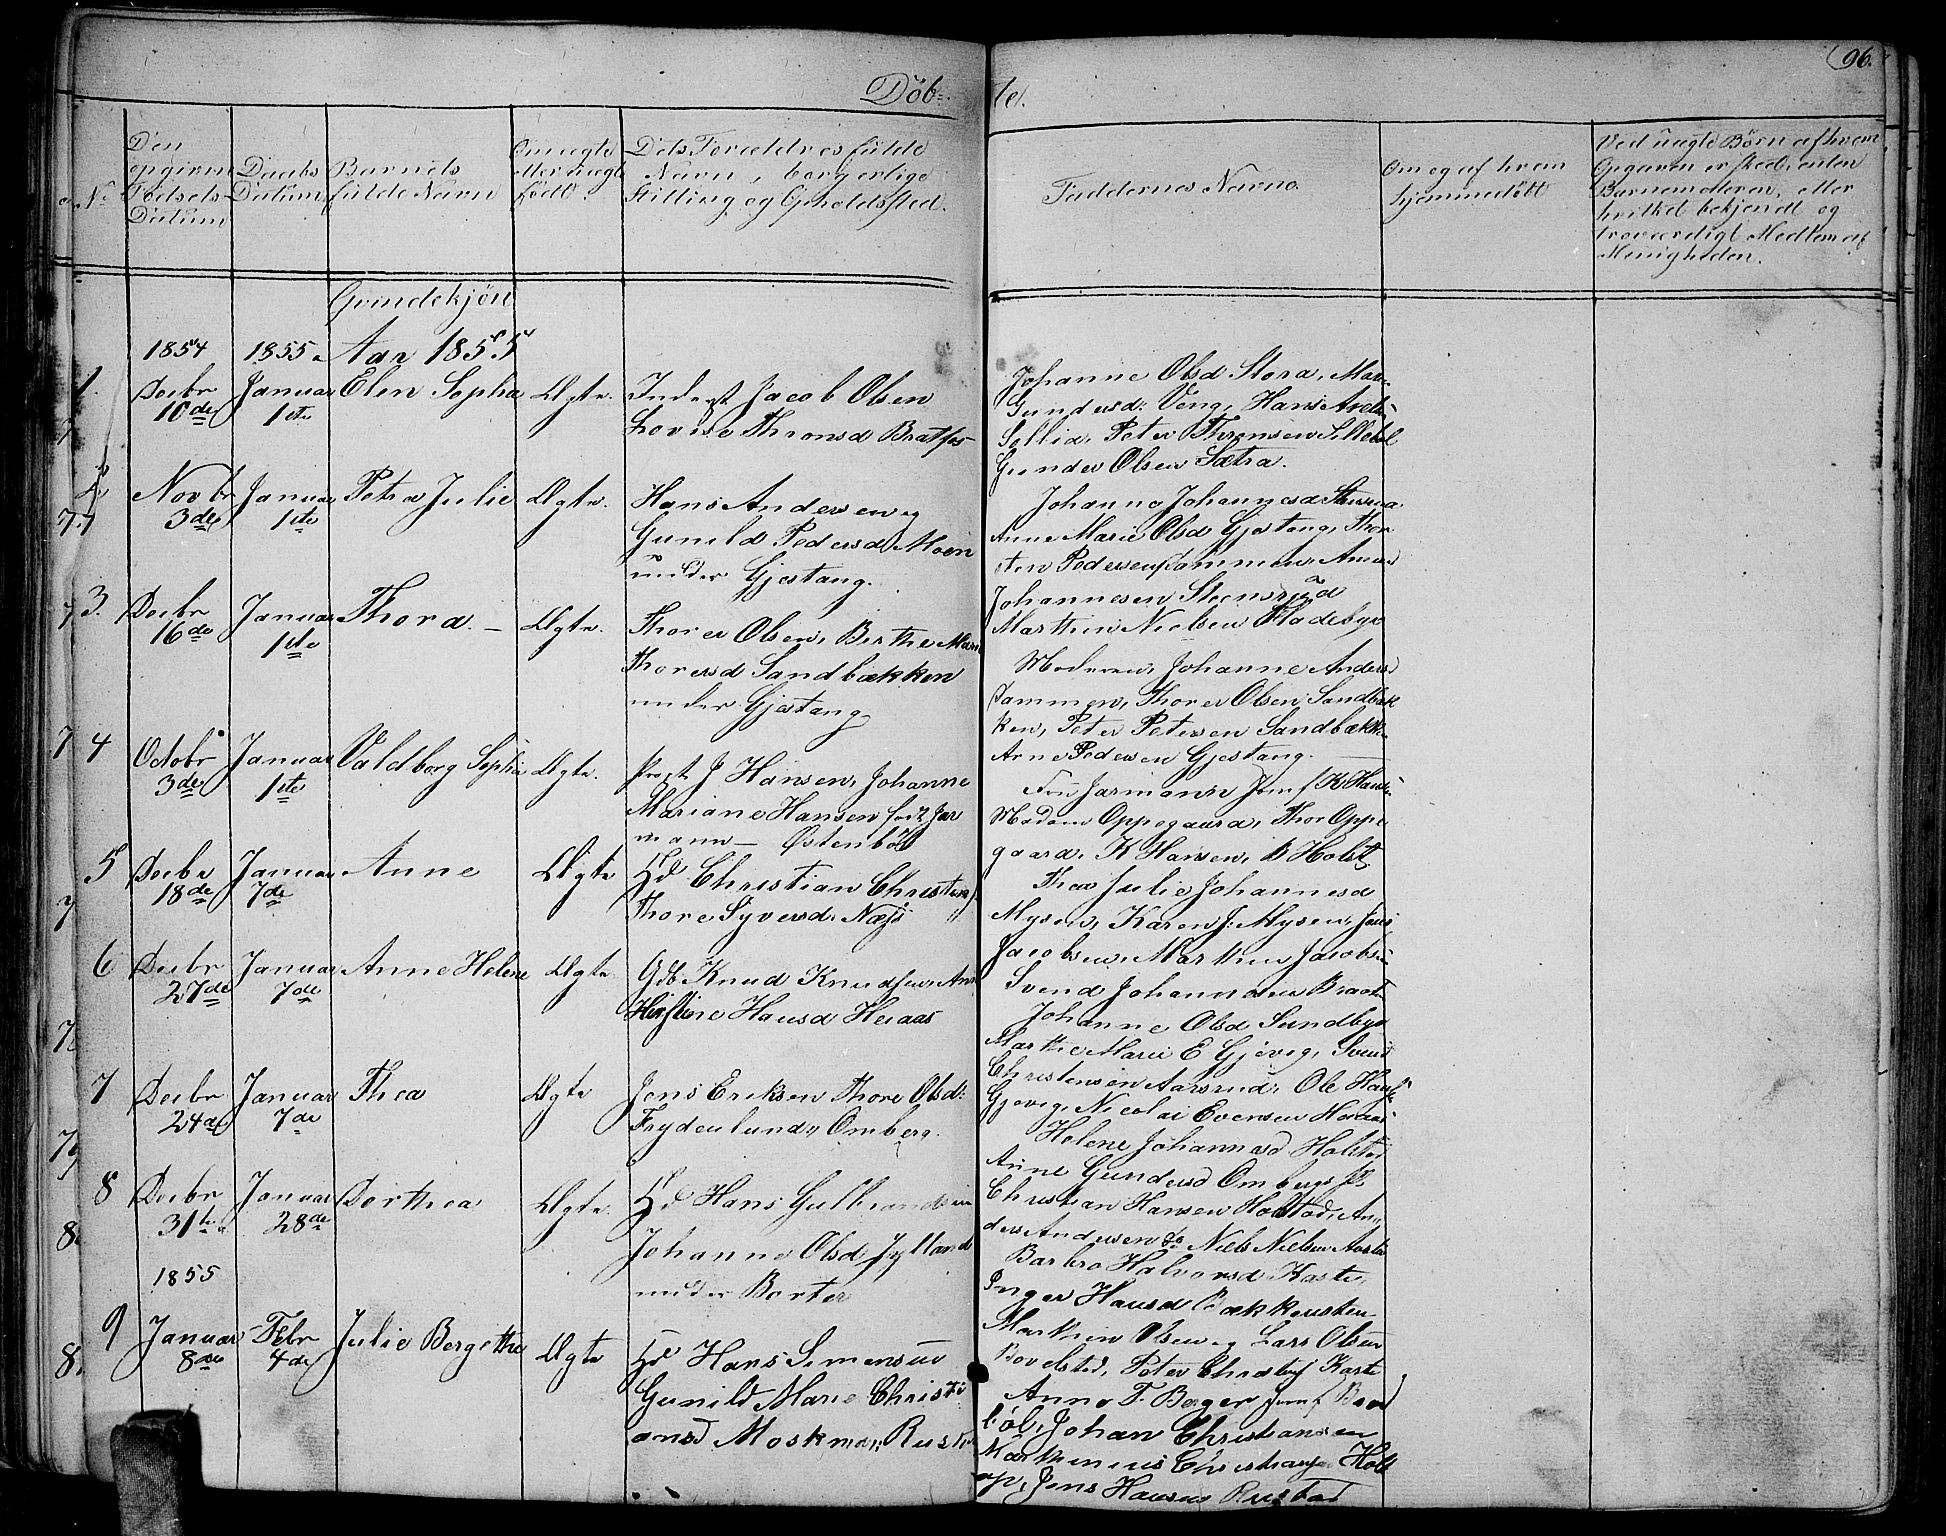 96.
Döbte.
No
Den opgivne Födsels Datum
Daabs Datum
Barnets fulde Navn
Om ægte eller uægte födt.
Dets Forældres fulde Navn, borgerlige Stilling og Opholdssted.
Faddernes Navne.
Om og af hvem hjemmedöbt
Ved uægte Börn af hvem Opgaven er skeet, enten Barnemoderen, eller hvilket bekjendt og troværdigt Medlem af Menigheden.
Qvindekjön
1854 1855 Aar 1855
1. Decbr 10de Januar 1ste Elen Sophia Ægte.
Inderst Jacob Olsen
Lovise Thronsd Bratfos
Johanne Olsd Stora, Mari
Gundersd: Veng, Hans
Sollia, Peter Thronsen
Gunder Olsen Sætra.
2. Novbr 3de Januar 1ste Petra Julie Ægte.
Hans Andersen og
Gunild Pedersd Moen
under Gjestang.
Johanne Johannesd
Anne Marie Olsd Gjestang, Thor
sten Pedersen Dammen,
Johannesen Steensrud
Marthin Nielsen Fladebye
3. Decbr 16de Januar 1ste Thora. Ægte.
Thorer Olsen, Berthe Marie
Thoresd Sandbækken
under Gjestang
Moderen, Johanne Andersd
Dammen, Thorer Olsen Sandbæk
ken, Peter Petersen Sandbækk
Arne Pedersen Gjestang.
4 Octobr 3de Januar 1ste Valdborg Sophie Ægte.
Prest J Hansen, Johanne
Mariane Hansen født Jar
mann Østenbøl
Jarmann Jomf K Hansen
Madam Oppegaard, Thor Oppe
gaard, K Hansen, Holst
5 Decbr 18de Januar 7de Anne Ægte
Hd Christian Christens
Thore Syversd Næss
Thea Julie Johannesd
Mysen, Karen J: Mysen, Jens
Jacobsen, Marthin Jacobs
Svend Johannesen Braate
6 Decbr 27de Januar 7de Anne Helene Ægte
Gdb Knud Knudsen, Anne
Hansd Heraas
Johanne Olsd Sundbye
Marthe Marie E Gjevig, Svend
Christensen Aarsrud, Ole Hans
Gjevig, Nicolai Evensen Heraas
7 Decbr 24de Januar 7de Thea Ægte
Jens Eriksen Thore Olsd:
Frydenlund Omberg.
Helene Johannesd Holstad
Anne Gundersd Ombergs
Christian Hansen Holstad, An
ders Andersen Niels Nielsen
8 Decbr 31te Januar 28de Dorthea Ægte
Hd Hans Gulbrandsen
Johanne Olsd Jylland
under Borter
Barbro Halvorsd Kaste,
Inger Hansd Bækkensten
Marthin Olsen og Lars Olsen
Bovelsted, Peter Kaste
1855
9 Januar 8de Febr 4de Julie Bergethe Ægte
Hd Hans Simensen
Gunild Marie Christi
ansd Moskma,
Anne T. Bøger Jomf
bøl, Johan Christiansen
Marthinius Christians
Jens Hansen Rustad